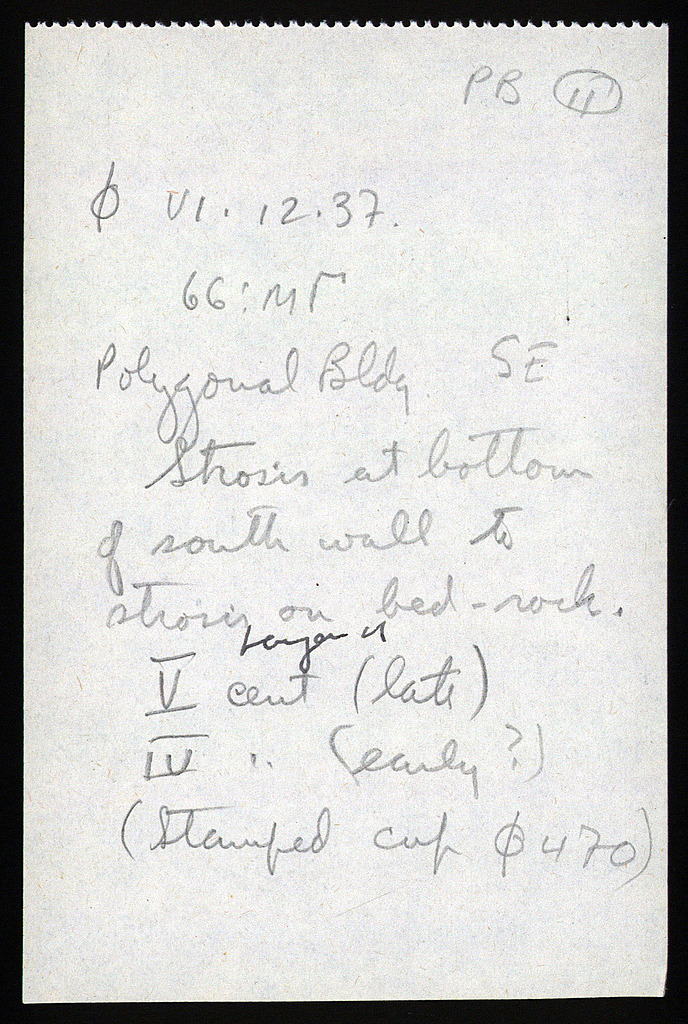 PB 11
φ VI. 12. 37.
66 : ΜΓ
Polygonal Bldg. SE
Strosis at bottom
of south wall to
strosis on bed-rock.
Layer II
V cent (late)
IV " (early?)
(Stamped cup φ 470)